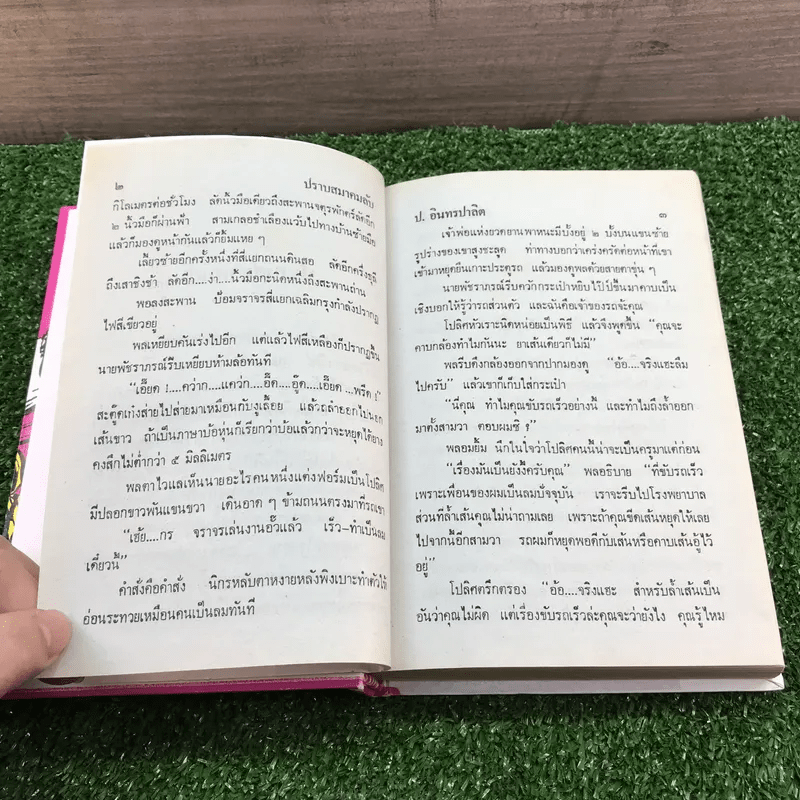 ๒ ปราบสมาคมลับ
กิโลเมตรต่อชั่วโมง ลัดนิ้วมือเดียวถึงสะพานจตุรพักตร์ลัดอีก
๒ นิ้วมือก็ผ่านฟ้า สามเกลอชำเลืองแว้บไปทางบ้านซ้ายมือ
แล้วก็มองดูหน้ากันแล้วก็ยิ้มแหย ๆ
เลี้ยวซ้ายอีกครั้งหนึ่งที่สี่แยกถนนดินสอ ลัดอีกครึ่งธุลี
ถึงเสาชิงช้า ลัดอีก....ง่า....นิ้วมือกะนิดหนึ่งถึงสะพานถ่าน
พอลงสะพาน ป้อมจราจรสี่แยกเฉลิมกรุงกำลังปรากฏ
ไฟสีเขียวอยู่
พลเหยียบคันเร่งไปอีก แต่แล้วไฟสีเหลืองก็ปรากฏขึ้น
นายพัชราภรณ์รีบเหยียบห้ามล้อทันที
“เอี๊ยด !....คว่าก....แคว่ก....อี๊ด....อู๊ด....เอี๊ยด ...พรืด !”
สะตู๊ดเก๋งส่ายไปส่ายมาเหมือนกับงูเลื้อย แล้วถลำออกไปนอก
เส้นขาว ถ้าเป็นภาษาบ้อหุ่นก็เรียกว่าบ้อแล้วกว่าจะหยุดได้ยาง
คงสึกไม่ต่ำกว่า ๕ มิลลิเมตร
พลตาไวแลเห็นนายอะไรคนหนึ่งแต่งฟอร์มเป็นโปลิศ
มีปลอกขาวพันแขนขวา เดินอาด ๆ ข้ามถนนตรงมาที่รถเขา
“เฮ้ย....กร จราจรเล่นงานอั๊วแล้ว เร็ว-ทำเป็นลม
เดี๋ยวนี้”
คำสั่งคือคำสั่ง นิกรหลับตาหงายหลังพิงเบาะทำตัวให้
อ่อนระทวยเหมือนคนเป็นลมทันที
ป. อินทรปาลิต ๓
เจ้าพ่อแห่งยวดยานพาหนะมีบั้งอยู่ ๒ บั้งบนแขนซ้าย
รูปร่างของเขาสูงชะลูด ท่าทางบอกว่าเคร่งครัดต่อหน้าที่เขา
เข้ามาหยุดยืนเกาะประตูรถ แล้วมองดูพลด้วยสายตาขุ่น ๆ
นายพัชราภรณ์รีบควักกระเป๋าหยิบไว้ไปป์ขึ้นมาคาบเป็น
เชิงบอกให้รู้ว่ารถส่วนตัว และฉันคือเจ้าของรถจ้ะคุณ
โปลิศหัวเราะนิดหน่อยเป็นพิธี แล้วจึงพูดขึ้น “คุณจะ
คาบกล้องทำไมกันนะ ยาเส้นเดียวก็ไม่มี”
พลรีบดึงกล้องออกจากปากมองดู “อ้อ...จริงแฮะลืม
ไปครับ” แล้วเขาก็เก็บใส่กระเป๋า
“นี่คุณ ทำไมคุณขับรถเร็วอย่างนี้ และทำไมถึงล้ำออก
มาตั้งสามวา ตอบผมซิ ?”
พลอมยิ้ม นึกในใจว่าโปลิศคนนี้น่าจะเป็นครูมาแต่ก่อน
“เรื่องมันเป็นยังงี้ครับคุณ” พลอธิบาย “ที่ขับรถเร็ว
เพราะเพื่อนของผมเป็นลมปัจจุบัน เราจะรีบไปโรงพยาบาล
ส่วนที่ล้ำเส้นคุณไม่น่าถามเลย เพราะถ้าคุณขีดเส้นหยุดให้เลย
ไปจากนี้อีกสามวา รถผมก็หยุดพอดีกับเส้นหรือคาบเส้นอู้ไว้
อยู่”
โปลิศตรึกตรอง “อ้อ....จริงแฮะ สำหรับล้ำเส้นเป็น
อันว่าคุณไม่ผิด แต่เรื่องขับรถเร็วล่ะคุณจะว่ายังไง คุณรู้ไหม